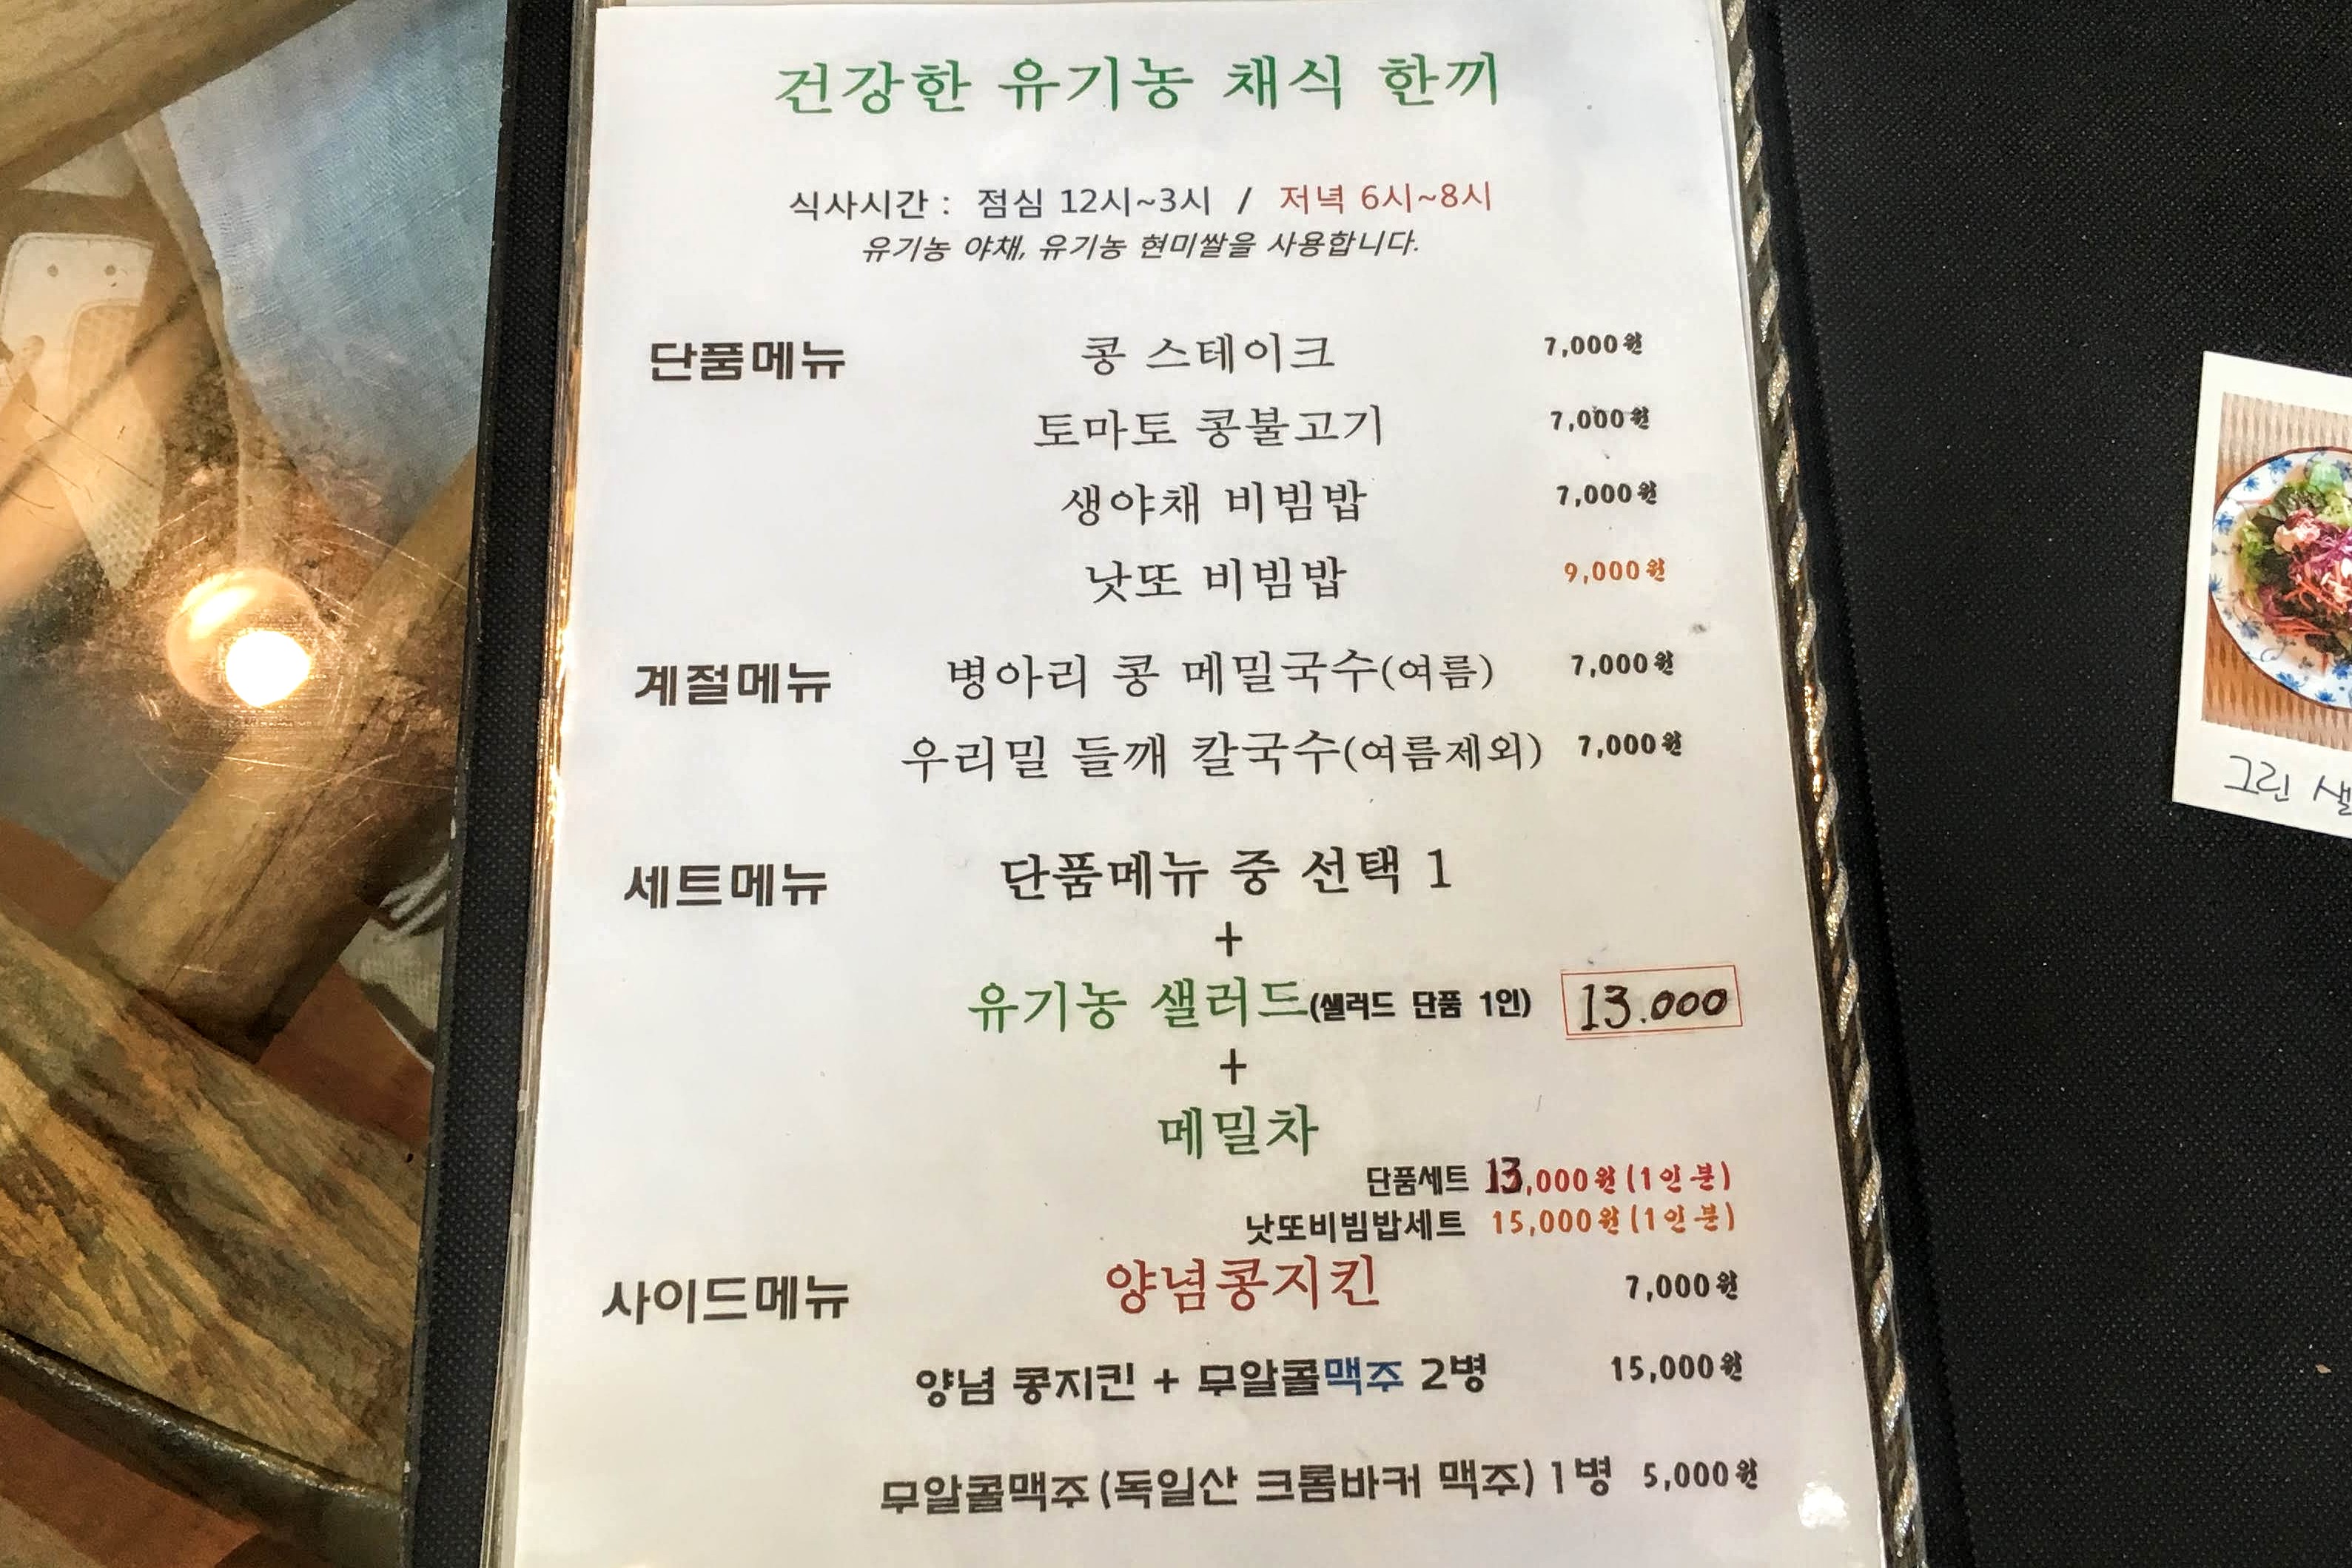 건강한 유기농 채식 한끼
식사시간 : 점심 12시~3시 / 저녁 6시~8시
유기농 야채, 유기농 현미쌀을 사용합니다.
단품메뉴 콩 스테이크 7,000원
토마토 콩불고기 7,000원
생야채 비빔밥 7,000원
낫또 비빔밥 9,000원
계절메뉴 병아리 콩 메밀국수(여름) 7,000원
우리밀 들깨 칼국수(여름제외) 7,000원
세트메뉴 단품메뉴 중 선택 1
+
유기농 샐러드(샐러드 단품 1인) 13.000
+
메밀차
단품세트 13,000원(1인분)
낫또비빔밥세트 15,000원(1인분)
사이드메뉴 양념콩지킨 7,000원
양념 콩지킨 + 무알콜맥주 2병 15,000원
무알콜맥주(독일산 크롬바커 맥주) 1병 5,000원
그린